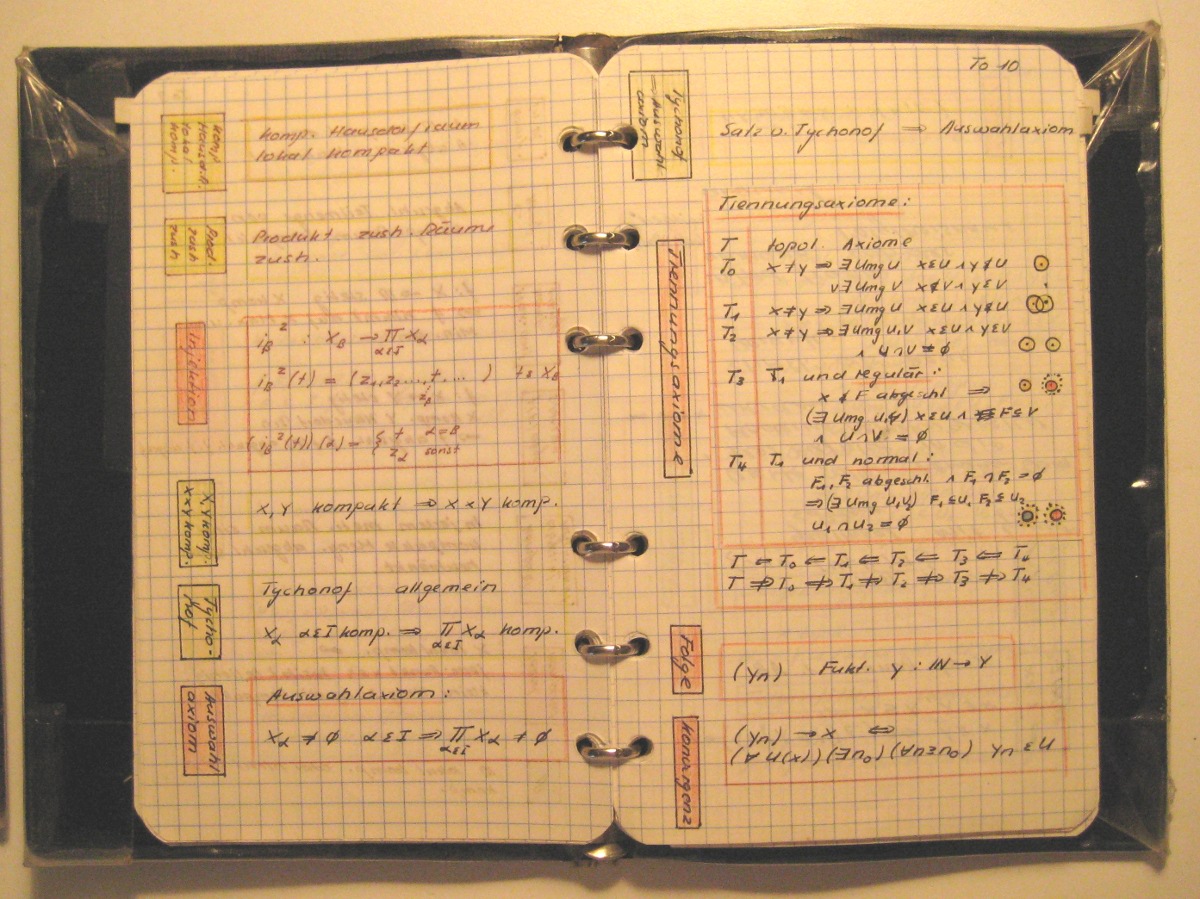 komp.
Hausd.R.
lokal
kompl.
komp. Hausdorfraum
lokal kompakt
Prod.
zush
zush
Produkt zush. Räume
zush.
Injektion
iβᶻ : Xβ → ∏ Xα
α∈I
iβᶻ(t) = (z₁, z₂ ..., t, ... ) t ε Xβ
zβ
(iβᶻ(t))(α) = { t α=β
zα sonst
X,Y komp.
X×Y komp.
X,Y kompakt ⇒ X×Y komp.
Tycho-
nof
Tychonof allgemein
Xα αεI komp. ⇒ ∏ Xα komp.
αεI
Auswahl
axiom
Auswahlaxiom:
Xα ≠ ∅ αεI ⇒ ∏ Xα ≠ ∅
αεI
To 10
Tychonof
⇒ Auswahl
axiom
Satz v. Tychonof ⇒ Auswahlaxiom
Trennungsaxiome
Trennungsaxiome:
T topol. Axiome
T₀ x≠y ⇒ ∃ Umg U xεU ∧ y∉U
∨ ∃ Umg V x∉V ∧ yεV
T₁ x≠y ⇒ ∃ Umg U xεU ∧ y∉U
T₂ x≠y ⇒ ∃ Umg U,V xεU ∧ yεV
∧ U∩V = ∅
T₃ T₁ und regulär:
x ∉ F abgeschl ⇒
(∃ Umg U,V) xεU ∧ F⊆V
∧ U∩V = ∅
T₄ T₁ und normal:
F₁, F₂ abgeschl. ∧ F₁∩F₂ = ∅
⇒ (∃ Umg U,V) F₁⊆U₁ F₂⊆U₂
U₁∩U₂ = ∅
T ⇐ T₀ ⇐ T₁ ⇐ T₂ ⇐ T₃ ⇐ T₄
T ⇏ T₀ ⇏ T₁ ⇏ T₂ ⇏ T₃ ⇏ T₄
Folge
(yn) Fukt. y : ℕ → Y
Konvergenz
(yn) → x ⇔
(∀ U(x)) (∃n₀) (∀n≥n₀) yn ε U